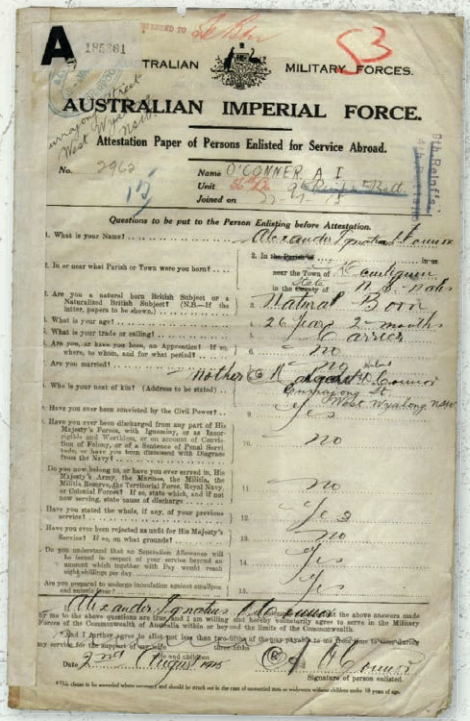 A
185361
TRALIAN MILITARY FORCES.
53
AUSTRALIAN IMPERIAL FORCE.
Street
West Wyalong
NSW
Attestation Paper of Persons Enlisted for Service Abroad.
No. 2962
Name O'CONNER A I
Unit
Joined on
Questions to be put to the Person Enlisting before Attestation.
1. What is your Name?
Alexander Ignatius O'Connor
2. In or near what Parish or Town were you born?
2. In the Parish of in or
near the Town of
in the County of N. S. Wales
3. Are you a natural born British Subject or a
Naturalized British Subject? (N.B.—If the
letter, papers to be shown.)
3. Natural Born
4. What is your age?
4. 26 years 2 months
5. What is your trade or calling?
Carrier
6. Are you, or have you been, an Apprentice? If so
where, to whom, and for what period?
6. no
Are you married?
no
Who is your next of kin? (Address to be stated)
mother Margaret O'Connor
St
West Wyalong NSW
Have you ever been convicted by the Civil Power?
9. yes
Have you ever been discharged from any part of His
Majesty's Forces, with Ignominy, or as Incor-
rigible and Worthless, or on account of Convic-
tion of Felony, or of a Sentence of Penal Servi-
tude, or have you been dismissed with Disgrace
from the Navy?
10. no
Do you now belong to, or have you ever served in, His
Majesty's Army, the Marines, the Militia, the
Militia Reserve, the Territorial Force, Royal Navy,
or Colonial Forces? If so, state which, and if not
now serving, state cause of discharge
11. no
Have you stated the whole, if any, of your previous
service?
12. Yes
Have you ever been rejected as unfit for His Majesty's
Service? If so, on what grounds?
13. no
Do you understand that no Separation Allowance will
be issued in respect of your service beyond an
amount which together with Pay would reach
eight shillings per day
14. Yes
Are you prepared to undergo inoculation against smallpox
and enteric fever?
15. Yes
I, Alexander Ignatius O'Connor do solemnly declare that the above answers made
by me to the above questions are true, and I am willing and hereby voluntarily agree to serve in the Military
Forces of the Commonwealth of Australia within or beyond the limits of the Commonwealth.
And I further agree to allot not less than two-fifths of the pay payable to me from time to time during
my service for the support of my wife
three-fifths
and children
Date 2nd August 1915
A I O'Connor
Signature of person enlisted.
* This clause to be amended where necessary and should be struck out in the case of unmarried men or widowers without children under 18 years of age.